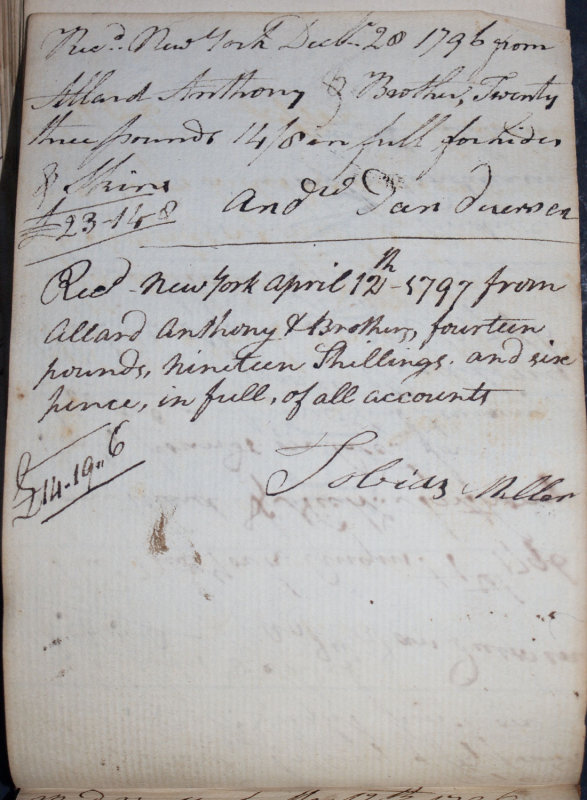 Recd. New York Decbr. 28 1796 from
Allard Anthony & Brother, Twenty
three pounds 14/8 in full for hides
& Skins
£23-14 8 Andw Van
Recd New York april 12th - 1797 from
allard anthony & Brother, fourteen
pounds, nineteen Shillings. and six
pence, in full, of all accounts
£14-19"6
Tobias Miller